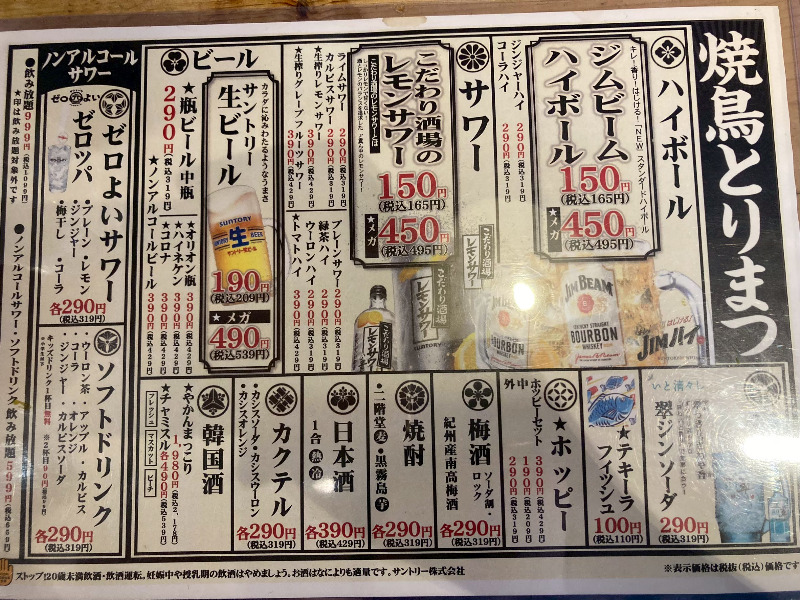 焼鳥とりまつ
ハイボール
キレ一番!!はじける!「NEW スタンダードハイボール」
ジムビーム
ハイボール
150円
(税込165円)
★メガ
450円
(税込495円)
ジンジャーハイ 290円(税込319円)
コーラハイ 290円(税込319円)
サワー
こだわり酒場のレモンサワーとは
こだわり酒場の
レモンサワー
150円
(税込165円)
★メガ
450円
(税込495円)
ライムサワー 290円(税込319円)
カルピスサワー 290円(税込319円)
★生搾りレモンサワー 390円(税込429円)
★生搾りグレープフルーツサワー 390円(税込429円)
プレーンサワー 290円(税込319円)
緑茶ハイ 290円(税込319円)
ウーロンハイ 290円(税込319円)
★トマトハイ 390円(税込429円)
こだわり酒場
レモンサワー
SUNTORY
JIM BEAM
KENTUCKY STRAIGHT
BOURBON
WHISKEY
はじける!
JIMハイ
ビール
カラダに沁みわたるようなうまさ
サントリー
生ビール
SUNTORY
生
BEER
190円
(税込209円)
★メガ
490円
(税込539円)
★瓶ビール中瓶
290円(税込319円)
★オリオン瓶 390円(税込429円)
★ハイネケン 390円(税込429円)
★コロナ 390円(税込429円)
★ノンアルコールビール 390円(税込429円)
ノンアルコール
サワー
ゼロよいサワー
ゼロよい
ゼロツパ
・プレーン・レモン
・ジンジャー
・梅干し ・コーラ
各290円
(税込319円)
●飲み放題999円(税込1099円)
★印は飲み放題対象外です
●ノンアルコールサワー・ソフトドリンク飲み放題599円(税込659円)
いと清々し
翠ジンソーダ
290円
(税込319円)
★テキーラ
フィツシュ
100円
(税込110円)
★ホッピー
ホッピーセット 390円(税込429円)
中 190円(税込209円)
外 290円(税込319円)
梅酒
ソーダ割・ロック
紀州産南高梅酒
各290円
(税込319円)
焼酎
・二階堂 麦 ・黒霧島 芋
各290円
(税込319円)
日本酒
1合 熱 冷
各390円
(税込429円)
カクテル
・カシスソーダ・カシスウーロン
・カシスオレンジ
各290円
(税込319円)
韓国酒
★やかんまっこり 1,980円(税込2,178円)
★チャミスル各490円(税込539円)
フレッシュ マスカット ピーチ
ソフトドリンク
ウーロン茶・アップル・カルピス
コーラ ・オレンジ
ジンジャー・カルピスソーダ
キッズドリンク1杯目無料
※2杯目90円
各290円
(税込319円)
ストップ!20歳未満飲酒・飲酒運転。妊娠中や授乳期の飲酒はやめましょう。お酒はなによりも適量です。サントリー株式会社
※表示価格は税抜(税込)価格です